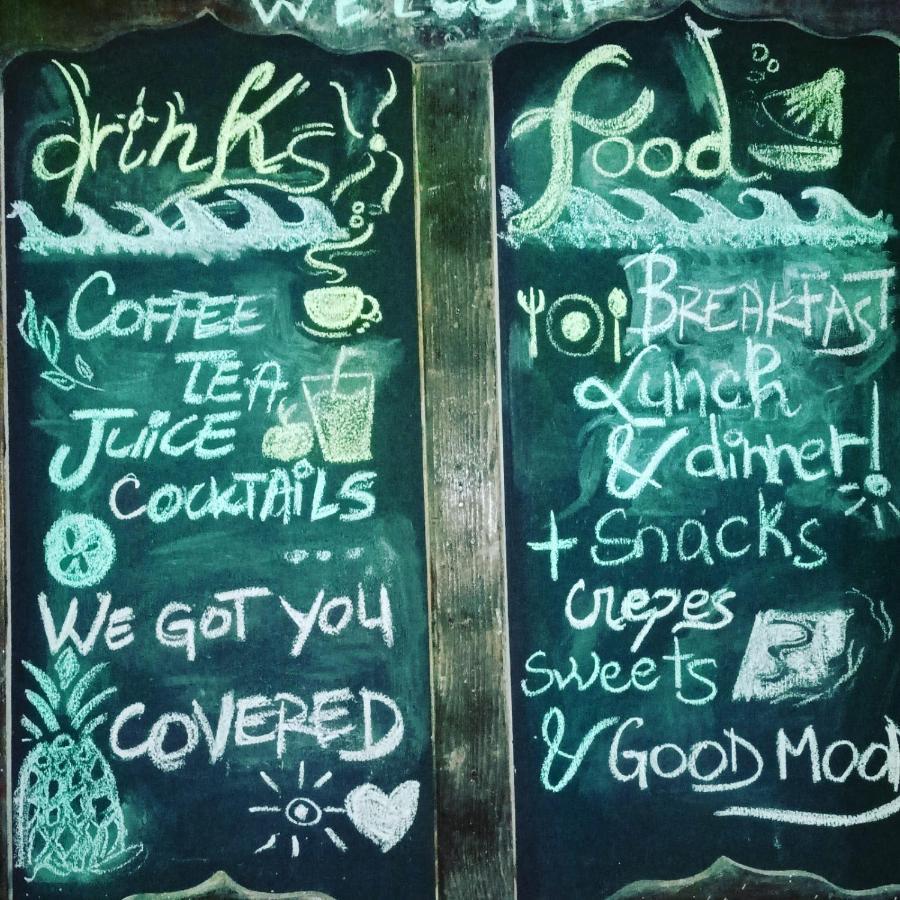 WELCOME
drinks
COFFEE
TEA
JUiCE
COCKTAiLS
...
WE GOT YOU
COVERED
food
BREAKFAST
Lunch
& dinner!
+ Snacks
crepes
sweets
& GOOD MOOD